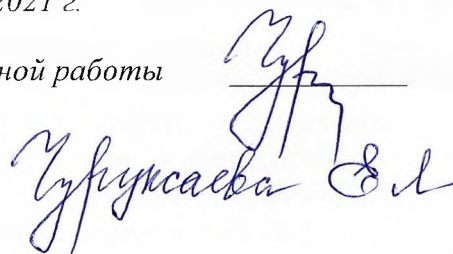 2021 г.
ной работы
Чурунсаева Е А